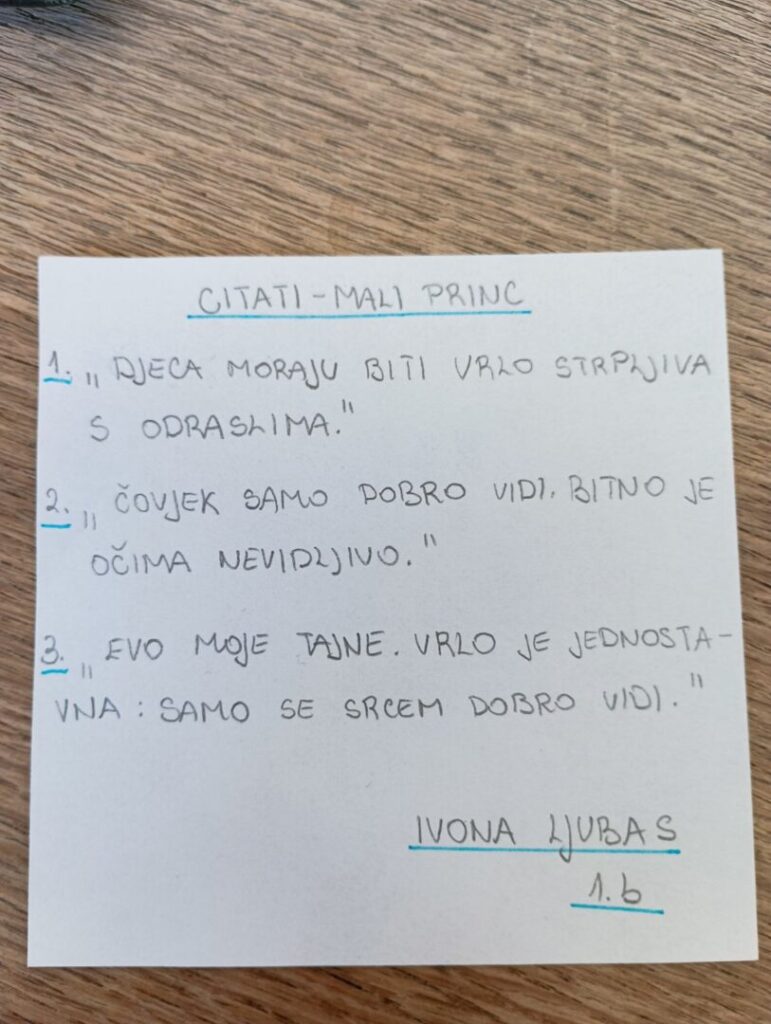 CITATI - MALI PRINC
1. „DJECA MORAJU BITI VRLO STRPLJIVA
S ODRASLIMA."
2. „ČOVJEK SAMO DOBRO VIDI. BITNO JE
OČIMA NEVIDLJIVO."
3. „EVO MOJE TAJNE. VRLO JE JEDNOSTA-
VNA : SAMO SE SRCEM DOBRO VIDI."
IVONA LJUBAS
1.b